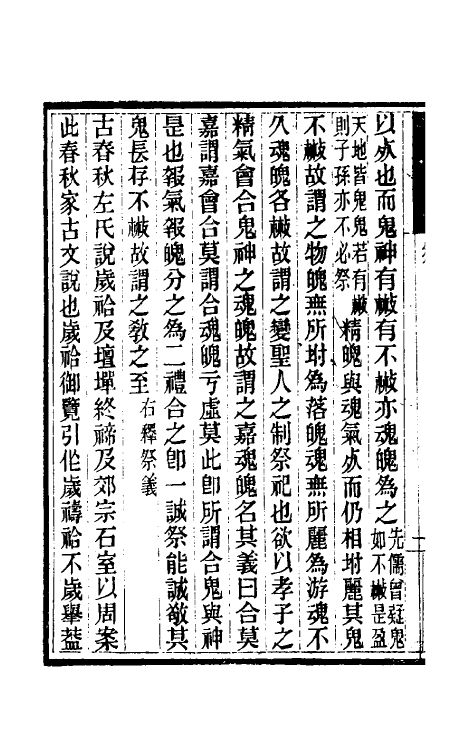 以死也而鬼神有㪚有不㪚亦魂魄為之先儒曾疑鬼
如不㪚是盈
天地皆鬼鬼若有㪚
則子孫亦不必祭精魄與魂氣死而仍相坿麗其鬼
不㪚故謂之物魄無所坿為落魄魂無所麗為游魂不
久魂魄各㪚故謂之變聖人之制祭祀也欲以孝子之
精氣會合鬼神之魂魄故謂之嘉魂魄名其義曰合莫
嘉謂嘉會合莫謂合魂魄亏虛莫此卽所謂合鬼與神
是也報氣報魄分之為二禮合之卽一誠祭能誠敬其
鬼長存不㪚故謂之教之至 右釋祭義
古春秋左氏說歲祫及壇墠終禘及郊宗石室以周案
此春秋家古文說也歲祫御覽引作歲禱祫不歲舉葢